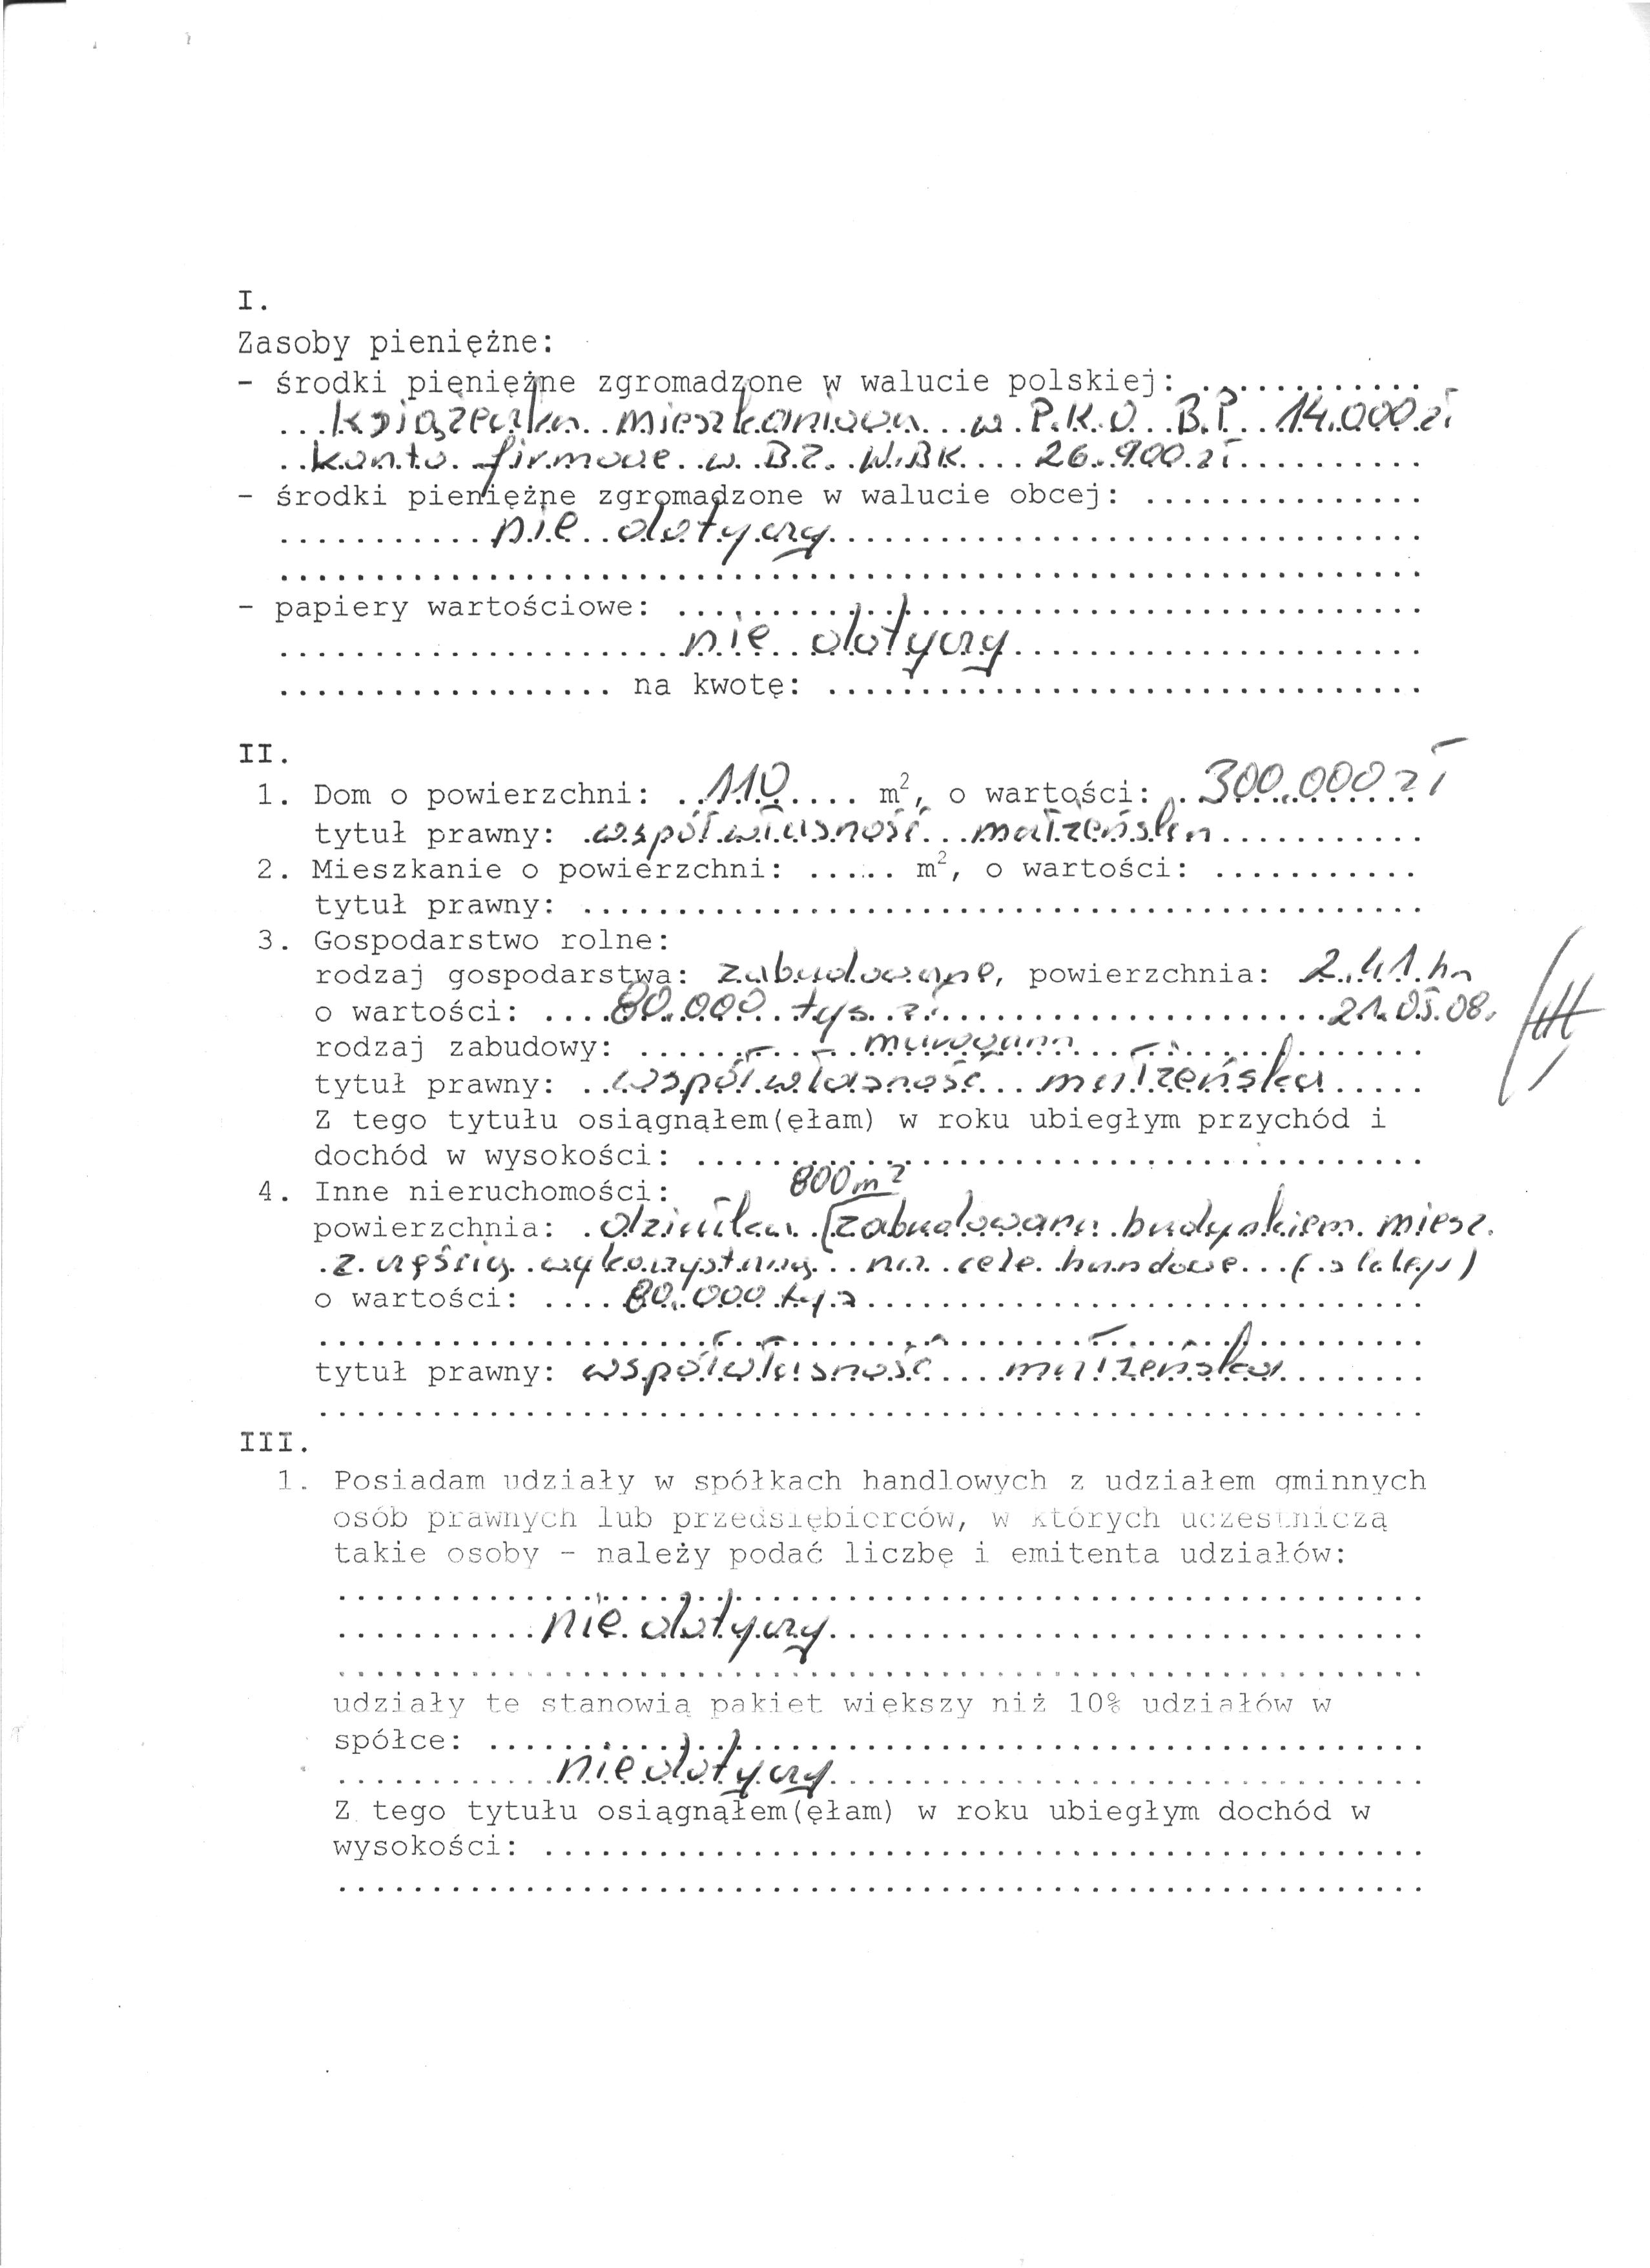 I.
Zasoby pieniężne:
- środki pieniężne zgromadzone w walucie polskiej: ............
książeczka mieszkaniowa w P.K.O. B.P. 14.000 zł
konto firmowe w B.Z. W.BK 26.900 zł
- środki pieniężne zgromadzone w walucie obcej: ...............
nie dotyczy
- papiery wartościowe: .......................................
nie dotyczy
.................. na kwotę: ................................
II.
1. Dom o powierzchni: 110 m², o wartości: 300.000 zł
tytuł prawny: współwłasność małżeńska
2. Mieszkanie o powierzchni: ...... m², o wartości: ...........
tytuł prawny: .............................................
3. Gospodarstwo rolne:
rodzaj gospodarstwa: zabudowane, powierzchnia: 2.41 ha
o wartości: 80.000 tys. zł 21.05.08.
rodzaj zabudowy: murowana
tytuł prawny: współwłasność małżeńska
Z tego tytułu osiągnąłem(ęłam) w roku ubiegłym przychód i
dochód w wysokości: .......................................
4. Inne nieruchomości: 800 m²
powierzchnia: działka zabudowana budynkiem miesz.
z częścią wykorzystaną na cele handowe (sklep)
o wartości: 80.000 tys
tytuł prawny: współwłasność małżeńska
III.
1. Posiadam udziały w spółkach handlowych z udziałem gminnych
osób prawnych lub przedsiębiorców, w których uczestniczą
takie osoby - należy podać liczbę i emitenta udziałów:
nie dotyczy
udziały te stanowią pakiet większy niż 10% udziałów w
spółce: ..................................................
nie dotyczy
Z tego tytułu osiągnąłem(ęłam) w roku ubiegłym dochód w
wysokości: ...............................................